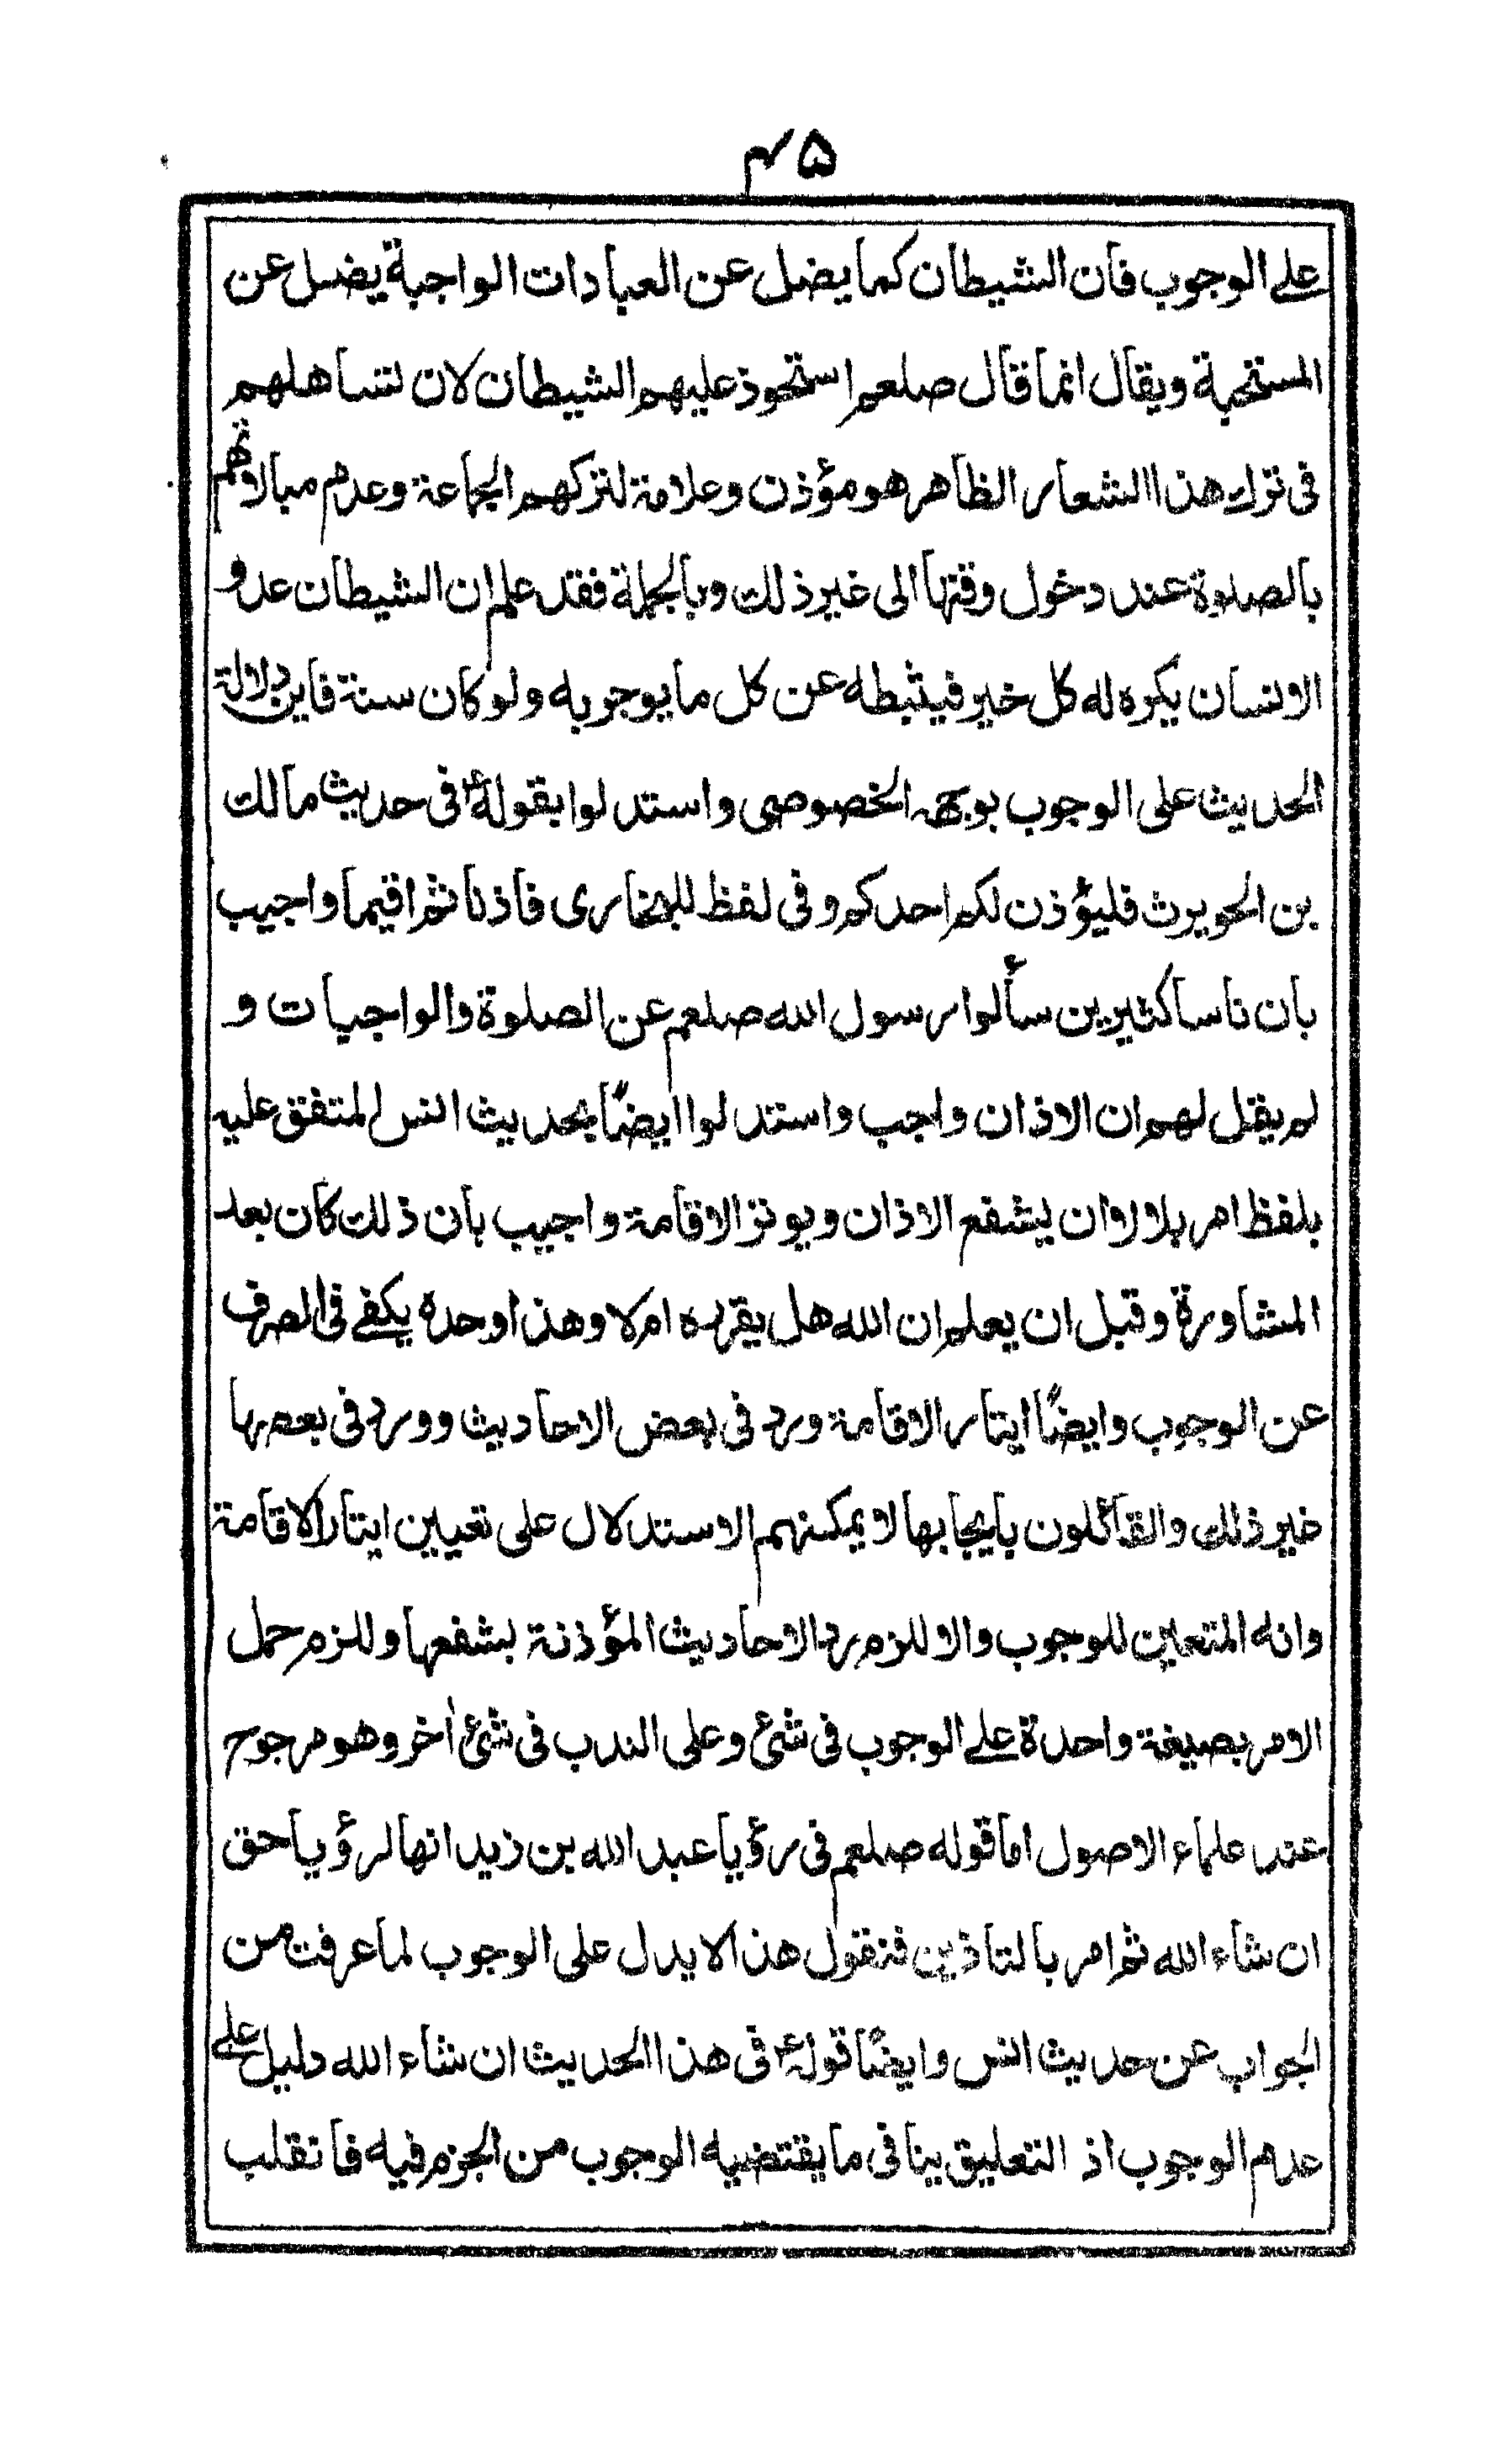 ۴۵
على الوجوب فان الشيطان كما يضل عن العبادات الواجبة يضل عن
المستحبة ويقال انما قال صلعم استحوذ عليهم الشيطان لان تساهلهم
فى ترك هذا الشعار الظاهر هو مؤذن وعلامة لتركهم الجماعة وعدم مبالاتهم
بالصلوة عند دخول وقتها الى غير ذلك وبالجملة فقد علم ان الشيطان عدو
الانسان يكره له كل خير فيثبطه عن كل ما يوجر به ولو كان سنة فاين دلالة
الحديث على الوجوب بوجهه الخصوصى واستدلوا بقولهؑ فى حديث مالك
بن الحويرث فليؤذن لكم احدكم وفى لفظ للبخارى فاذنا ثم اقيما واجيب
بان ناسا كثيرين سألوا رسول الله صلعم عن الصلوة والواجبات و
لم يقل لهم ان الاذان واجب واستدلوا ايضًا بحديث انس المتفق عليه
بلفظ امر بلالا ان يشفع الاذان ويوتر الاقامة واجيب بان ذلك كان بعد
المشاورة وقبل ان يعلم ان الله هل يقرره ام لا وهذا وحده يكفى فى الصرف
عن الوجوب وايضًا ايتار الاقامة ورد فى بعض الاحاديث وورد فى بعضها
غير ذلك والقائلون بايجابها لا يمكنهم الاستدلال على تعيين ايتار الاقامة
وانه المتعين للوجوب والا للزم رد الاحاديث المؤذنة بشفعها وللزم حمل
الامر بصيغة واحدة على الوجوب فى شئ وعلى الندب فى شئ اٰخر وهو مرجوح
عند علماء الاصول اما قوله صلعم فى رؤيا عبد الله بن زيد انها لرؤيا حق
ان شاء الله ثم امر بالتاذين فنقول هذا لا يدل على الوجوب لما عرفت من
الجواب عن حديث انس وايضًا قولهؑ فى هذا الحديث ان شاء الله دليل على
عدم الوجوب اذ التعليق ينافى ما يقتضيه الوجوب من الجزم فيه فانقلب